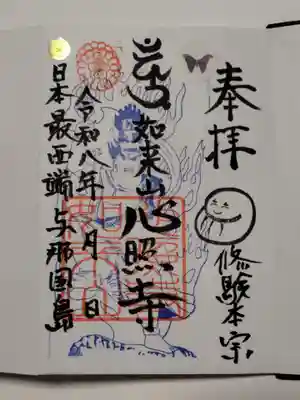 奉拝
修験本宗
如来山
心照寺
令和八年 月 日
日本最西端与那国島